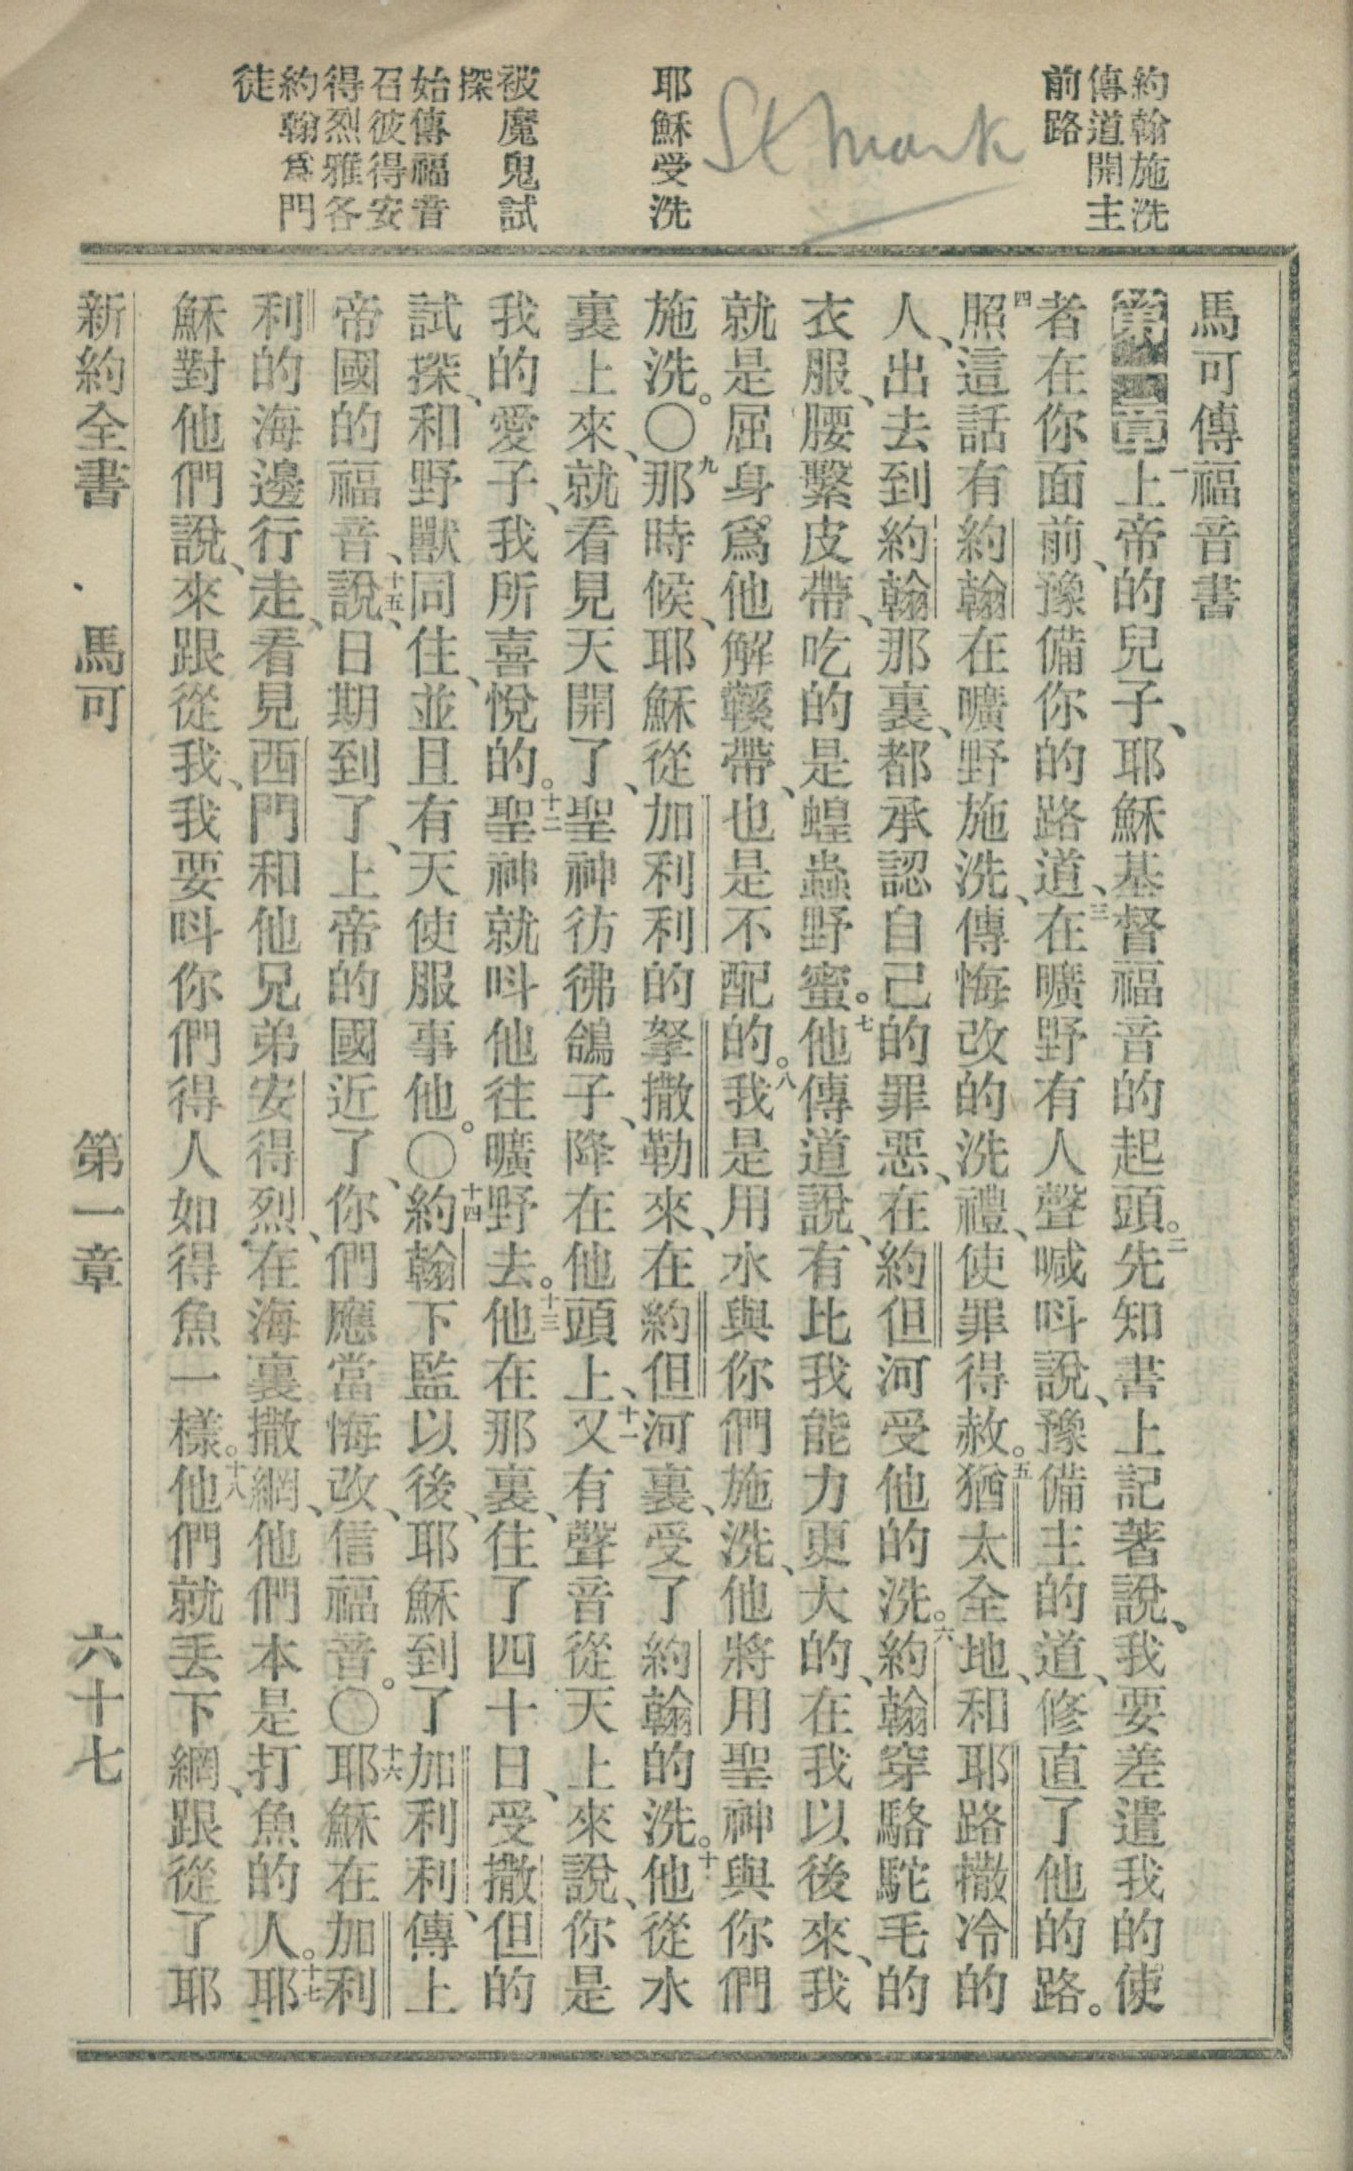 約翰施洗
傳道開主
前路
St Mark
耶穌受洗
被魔鬼試
探
始傳福音
召彼得安
得烈雅各
約翰爲門
徒
馬可傳福音書
第一章 一上帝的兒子、耶穌基督福音的起頭。二先知書上記著說、我要差遣我的使
者在你面前、豫備你的路道、三在曠野有人聲喊呌說、豫備主的道、修直了他的路。
四照這話有約翰在曠野施洗、傳悔改的洗禮、使罪得赦。五猶太全地、和耶路撒冷的
人、出去到約翰那裏、都承認自己的罪惡、在約但河受他的洗。六約翰穿駱駝毛的
衣服、腰繫皮帶、吃的是蝗蟲野蜜。七他傳道說、有比我能力更大的、在我以後來、我
就是屈身爲他解鞵帶、也是不配的。八我是用水與你們施洗、他將用聖神與你們
施洗。〇九那時候、耶穌從加利利的拏撒勒來、在約但河裏、受了約翰的洗。十他從水
裏上來、就看見天開了、聖神彷彿鴿子、降在他頭上、十一又有聲音從天上來說、你是
我的愛子、我所喜悅的。十二聖神就呌他往曠野去。十三他在那裏、住了四十日、受撒但的
試探、和野獸同住、並且有天使服事他。〇十四約翰下監以後、耶穌到了加利利、傳上
帝國的福音、十五說、日期到了、上帝的國近了、你們應當悔改、信福音。〇十六耶穌在加利
利的海邊行走、看見西門和他兄弟安得烈、在海裏撒網、他們本是打魚的人。十七耶
穌對他們說、來跟從我、我要呌你們得人如得魚一樣。十八他們就丟下網、跟從了耶
新約全書 馬可 第一章 六十七